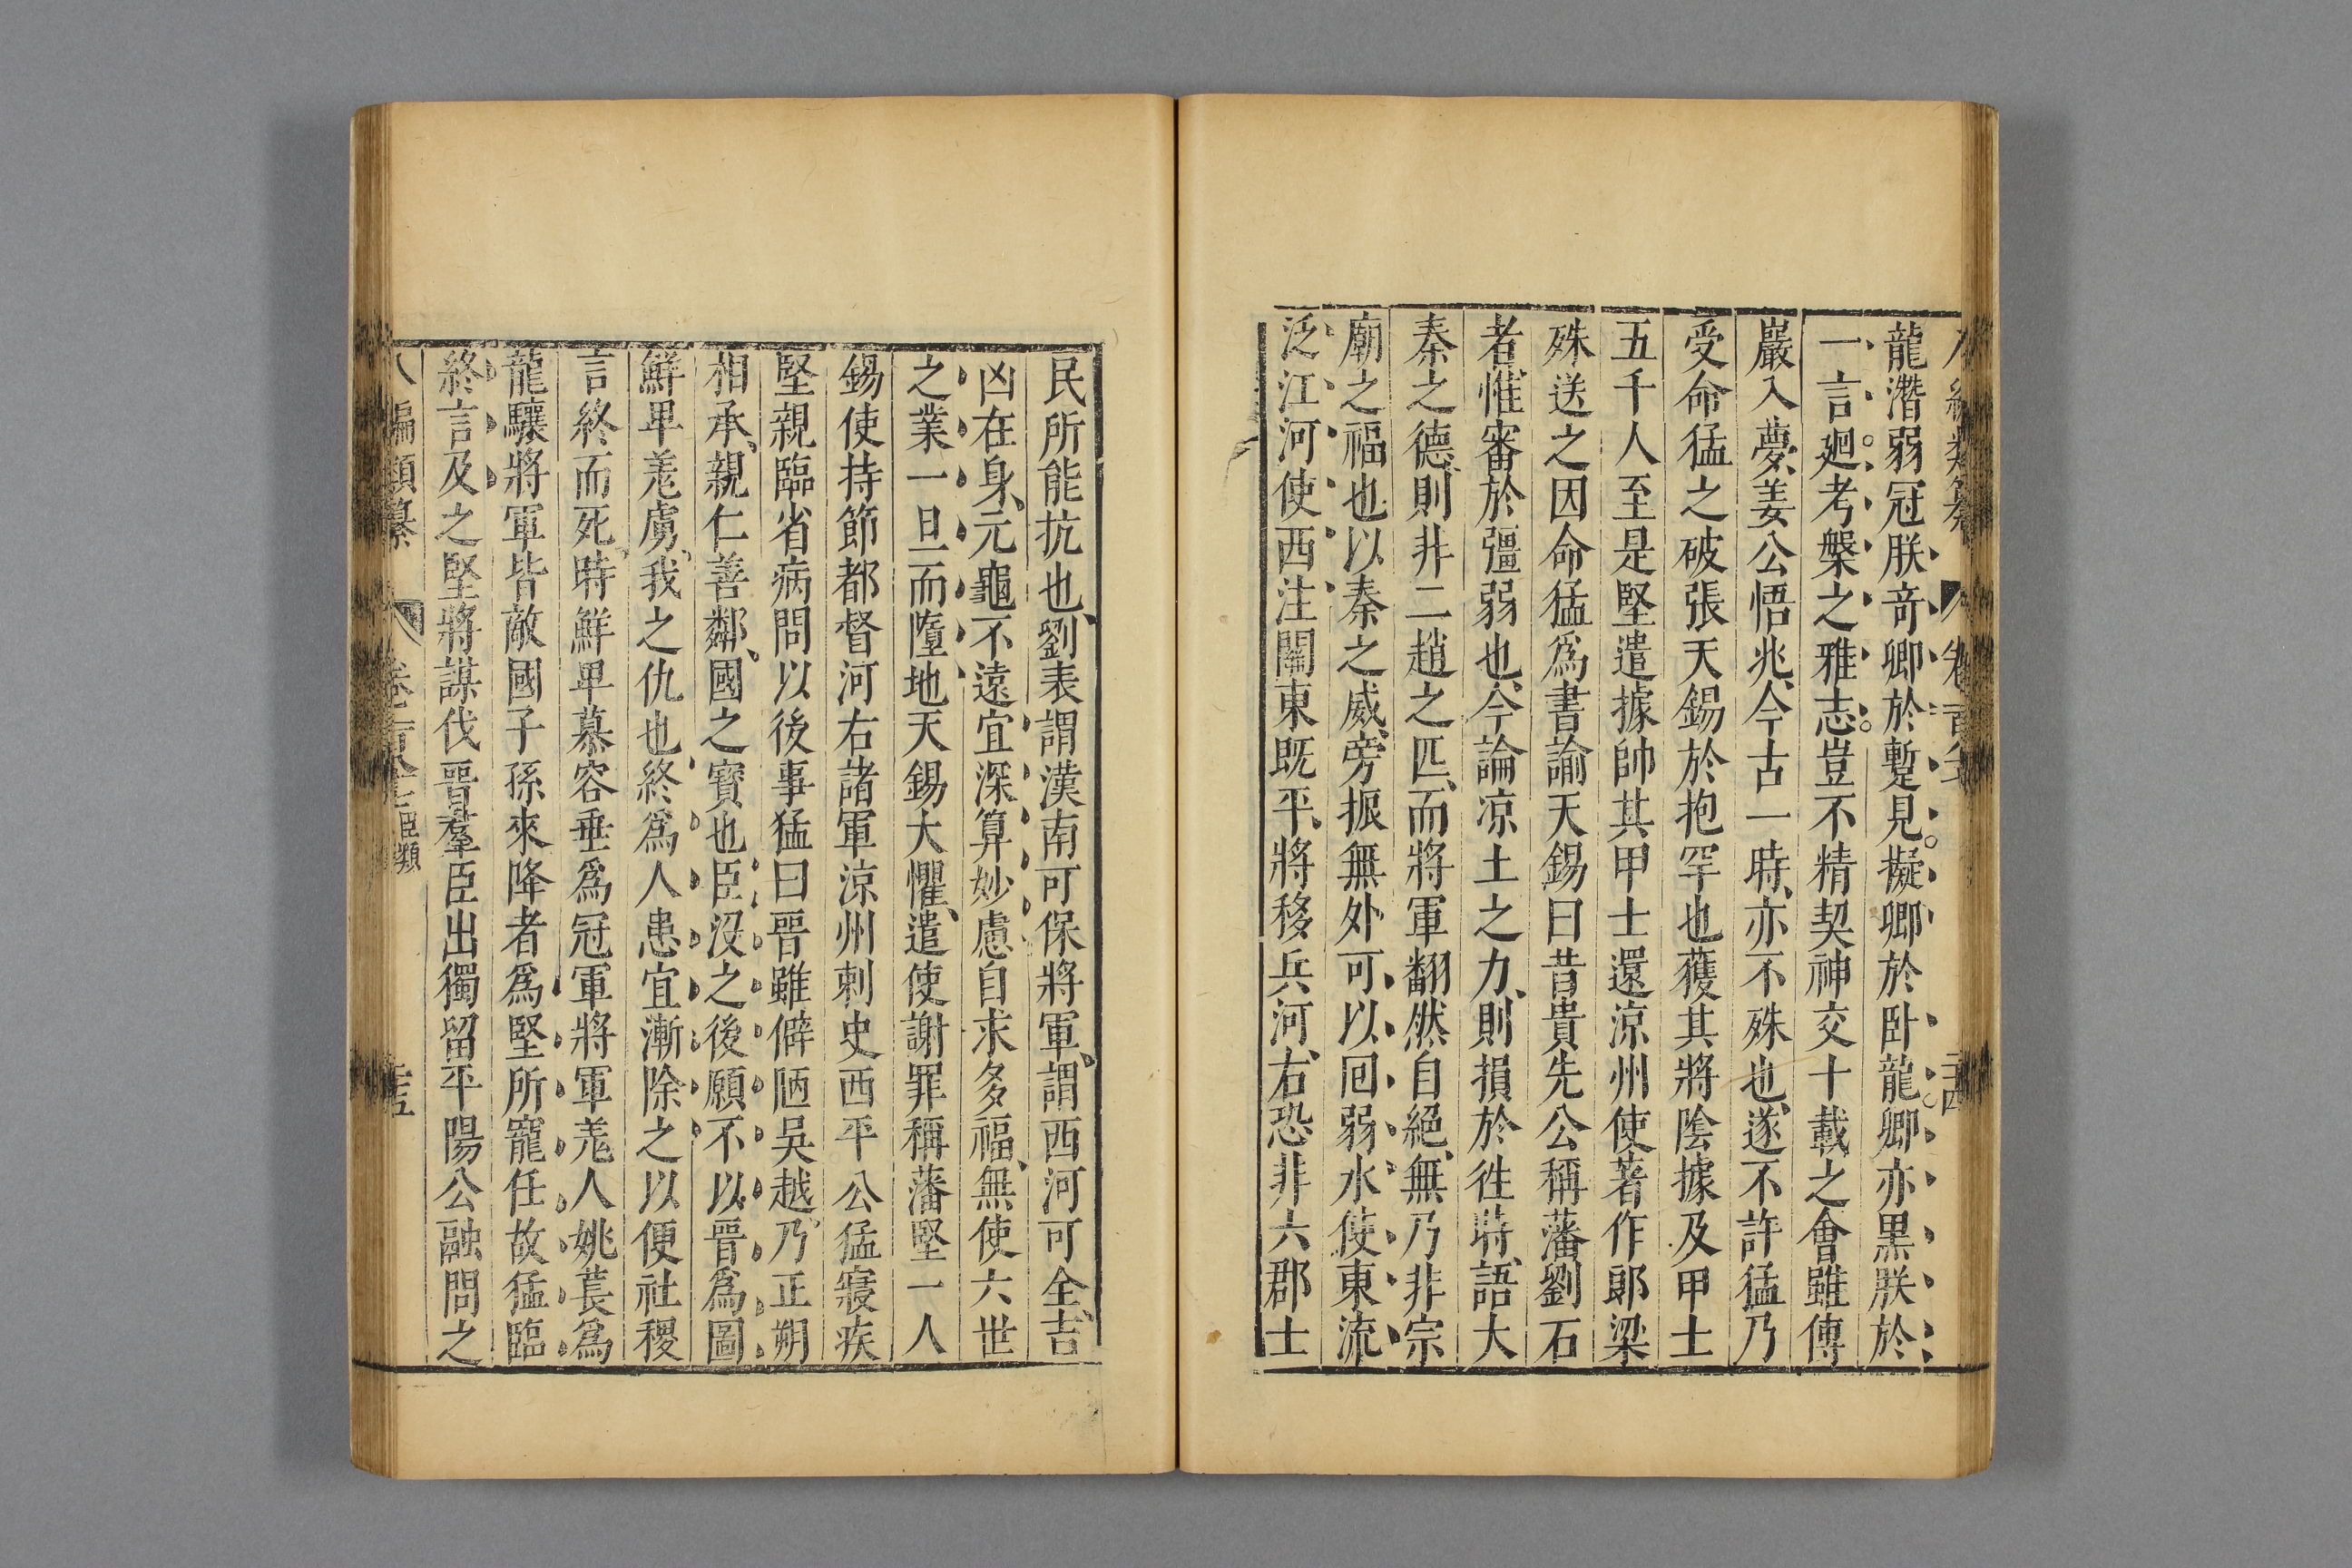 龍潛弱冠朕竒卿於暫見擬卿於卧龍卿亦黒朕於
一言廻考槃之雅志豈不精契神交十載之會雖傳
巖入夢姜公悟兆今古一時亦不殊也遂不許猛乃
受命猛之破張天錫於抱罕也獲其將陰據及甲士
五千人至是堅遣據帥其甲士還涼州使著作郎梁
殊送之因命猛爲書諭天錫曰昔貴先公稱藩劉石
者惟審於彊弱也今論凉土之力則損於徃時語大
秦之德則非二趙之匹而將軍翻然自絕無乃非宗
廟之福也以秦之威旁振無外可以囘弱水使東流
泛江河使西注關東既平將移兵河右恐非六郡士
民所能抗也劉表謂漢南可保將軍謂西河可全吉
凶在身元龜不遠宜深算妙慮自求多福無使六世
之業一旦而墮地天錫大懼遣使謝罪稱藩堅一人
錫使持節都督河右諸軍涼州刺史西平公猛寢疾
堅親臨省病問以後事猛曰晉雖僻陋吳越乃正朔
相承親仁善鄰國之寶也臣沒之後願不以晉爲圖
鮮卑羗虜我之仇也終爲人患宜漸除之以便社稷
言終而死時鮮卑慕容垂爲冠軍將軍羗人姚萇爲
龍驤將軍皆敵國子孫來降者爲堅所寵任故猛臨
終言及之堅將謀伐晉羣臣出獨留平陽公融問之
八編類纂 臣類